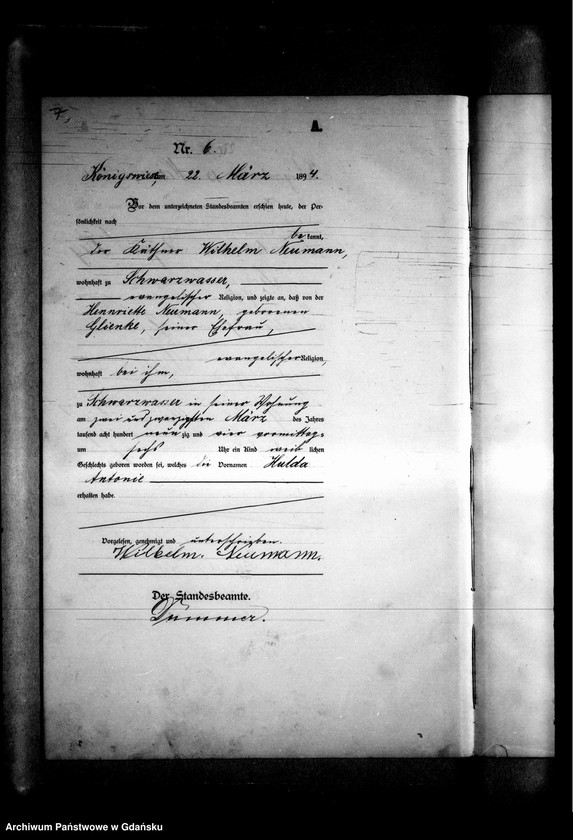 7,
A.
Nr. 6.
Königswiese, am 22. März 1894.
Vor dem unterzeichneten Standesbeamten erschien heute, der Per-
sönlichkeit nach
be kannt,
der Käthner Wilhelm Neumann,
wohnhaft zu Schwarzwasser,
evangelischer Religion, und zeigte an, daß von der
Hennriette Neumann, geborenen
Glienke, seiner Ehefrau,
evangelischer Religion,
wohnhaft bei ihm,
zu Schwarzwasser in seiner Wohnung
am zwei und zwanzigsten März des Jahres
tausend acht hundert neunzig und vier vormittags
um sechs Uhr ein Kind weib lichen
Geschlechts geboren worden sei, welches die Vornamen Hulda
Antonie
erhalten habe.
Vorgelesen, genehmigt und unterschrieben.
Wilhelm. Neumann.
Der Standesbeamte.
Archiwum Państwowe w Gdańsku